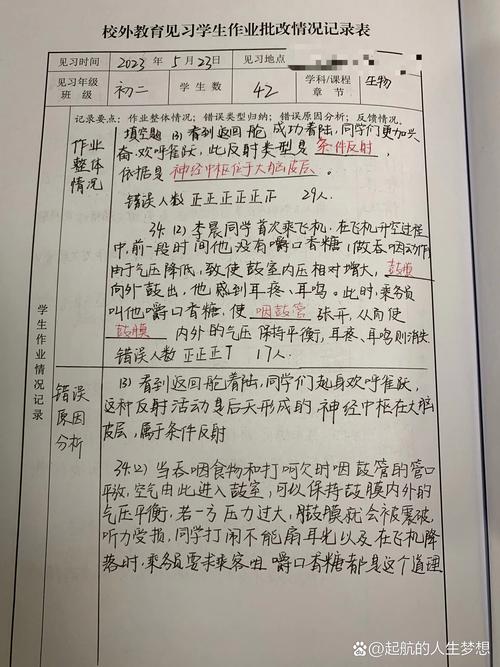 校外教育见习学生作业批改情况记录表
见习时间 2023 年 5 月 23 日 见习地点
见习年级班级 初二 学生数 42 学科/课程章节 生物
学生作业情况记录
记录要点：作业整体情况；错误类型归纳；错误原因分析；反馈情况。
作业整体情况
填空题 13) 看到返回舱 成功着陆，同学们更加兴
奋、欢呼雀跃，此反射类型是 条件反射，
依据是 神经中枢位于大脑皮层。
错误人数 正正正正正正 29人.
34.12) 李晨同学首次乘飞机，在飞机升空过程
中，前一段时间他没有嚼口香糖（做吞咽动作）
由于气压降低，致使鼓室内压相对增大，鼓膜
向外鼓出，他感到耳疼、耳鸣。此时，乘务员
叫他嚼口香糖，使 咽鼓管 张开，从而使
鼓膜 内外的气压保持平衡，耳疼、耳鸣则消失
错误人数 正正正丅 17人.
错误原因分析
13) 看到返回舱着陆，同学们起身欢呼雀跃，
这种反射活动是后天形成的 神经中枢在大脑
皮层，属于条件反射
34.12) 当吞咽食物和打呵欠时咽鼓管的管口
开放，空气由此进入鼓室，可以保持鼓膜内外的
气压平衡，若一方压力过大，鼓膜就会被震破，
听力受损，同学打闹不能扇耳光以及在飞机降
落时，乘务员要求乘客咀嚼口香糖都是这个道理
起航的人生梦想